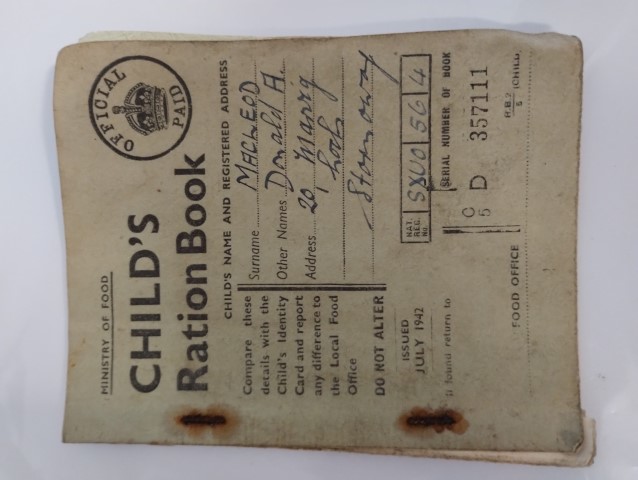 MINISTRY OF FOOD
OFFICIAL
PAID
CHILD'S
Ration Book
CHILD'S NAME AND REGISTERED ADDRESS
Compare these
details with the
Child's Identity
Card and report
any difference to
the Local Food
Office
DO NOT ALTER
Surname MACLEOD
Other Names Donald A.
Address 20, Marvig
Lochs
Stornoway
ISSUED
JULY 1942
NAT.
REG.
No. SXUO 56 4
If found return to
FOOD OFFICE
SERIAL NUMBER OF BOOK
C
6 D 357111
R.B.2
6 (CHILD